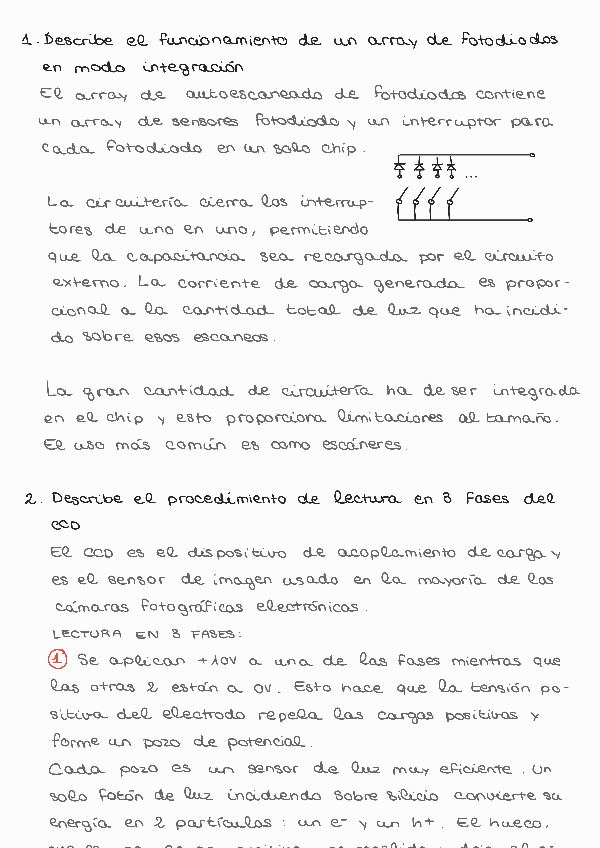 1. Describe el funcionamiento de un array de fotodiodos
en modo integración
El array de autoescaneado de fotodiodos contiene
un array de sensores fotodiodo y un interruptor para
cada fotodiodo en un solo chip.
...
La circuitería cierra los interrup-
tores de uno en uno, permitiendo
que la capacitancia sea recargada por el circuito
externo. La corriente de carga generada es propor-
cional a la cantidad total de luz que ha incidi-
do sobre esos escaneos.
La gran cantidad de circuitería ha de ser integrada
en el chip y esto proporciona limitaciones al tamaño.
El uso más común es como escáneres.
2. Describe el procedimiento de lectura en 3 fases del
CCD
El CCD es el dispositivo de acoplamiento de carga y
es el sensor de imagen usado en la mayoría de las
cámaras fotográficas electrónicas.
LECTURA EN 3 FASES:
1 Se aplican +10V a una de las fases mientras que
las otras 2 están a 0V. Esto hace que la tensión po-
sitiva del electrodo repela las cargas positivas y
forme un pozo de potencial.
Cada pozo es un sensor de luz muy eficiente. Un
solo fotón de luz incidiendo sobre silicio convierte su
energía en 2 partículas: un e- y un h+. El hueco,